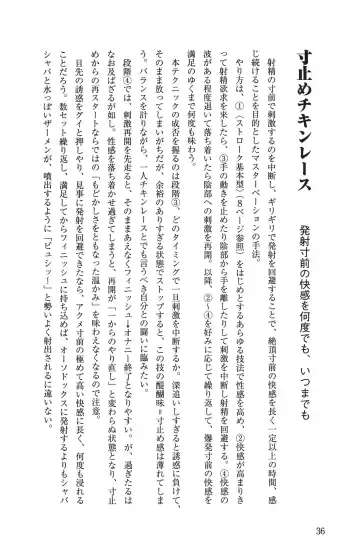 寸止めチキンレース
発射寸前の快感を何度でも、いつまでも
射精の寸前で刺激するのを中断し、ギリギリで発射を回避することで、絶頂寸前の快感を長く一定以上の時間、感
じ続けることを目的としたマスターベーションの手法。
やり方は、①〈ストローク基本型〉(8ページ参照)をはじめとするあらゆる技法で性感を高め、②快感が高まりき
って射精欲求が来したら、③手の動きを止めたり陰部から手を離したりして刺激を中断し射精を回避する。④快感の
波がある程度退いて落ち着いたら陰部への刺激を再開。以降、②〜④を好みに応じて繰り返して、爆発寸前の快感を
満足のゆくまで何度も味わう。
本テクニックの成否を握るのは段階③、どのタイミングで一旦刺激を中断するか。深追いしすぎると誘惑に負けて、
そのまま放ってしまいがちだが、余裕のありすぎる状態でストップすると、この技の醍醐味=寸止め感は薄れてしま
う。バランスを計りながら、一人チキンレースとでも言うべき自分との闘いに臨みたい。
段階④では、刺激再開を先走ると、そのままあえなくフィニッシュ→オナニー終了となりやすい。が、過ぎたるは
なお及ばざるが如し。性感を落ち着かせ過ぎてしまうと、再開が「一からのやり直し」と変わらぬ状態となり、寸止
めからの再スタートならではの「もどかしさをともなった温かみ」を味わえなくなるので注意。
目先の誘惑をグイと押しやり、見事に発射を回避できたなら、アクメ寸前の極めて高い快感に長く、何度も浸れる
ことだろう。数セット繰り返し、満足してからフィニッシュに持ち込めば、オーソドックスに発射するよりもシャバ
シャバと水っぽいザーメンが、噴出するように「ビュシッー!」と勢いよく射出されるに違いない。
36